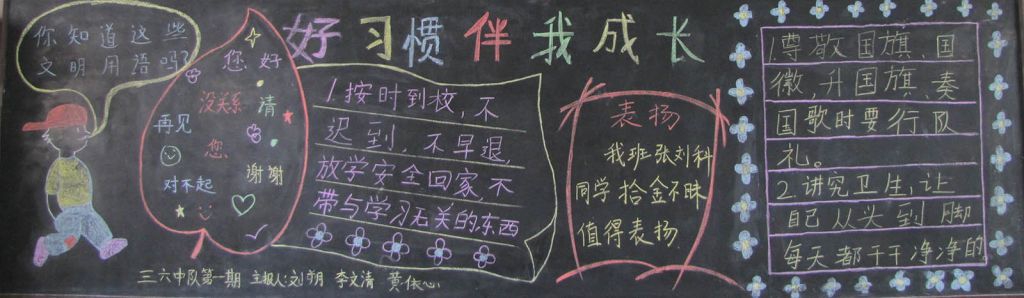 好习惯伴我成长
你知道这些
文明用语吗?
您好
没关系
清
再见
您
谢谢
对不起
1按时到校,不
迟到,不早退,
放学安全回家,不
带与学习无关的东西
表扬
我班张刘科
同学拾金不昧
值得表扬
1.尊敬国旗、国
徽,升国旗、奏
国歌时要行队
礼。
2.讲究卫生,让
自己从头到脚
每天都干干净净的
三六中队第一期 主报人:刘
李文清